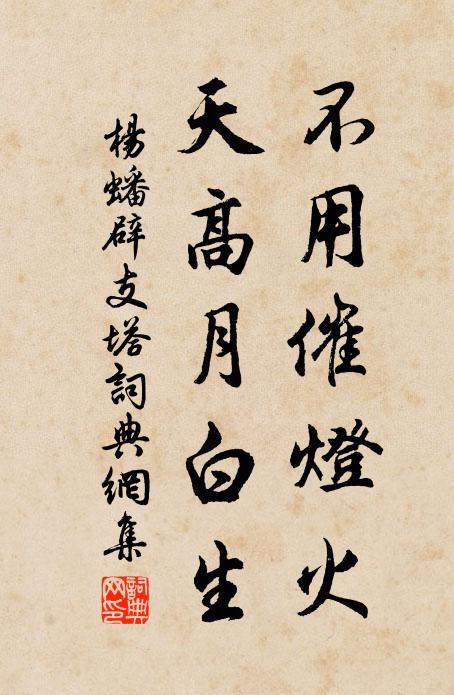 不用催燈火
天高月白生
楊蟠辟支塔詞典網集
詞典网印